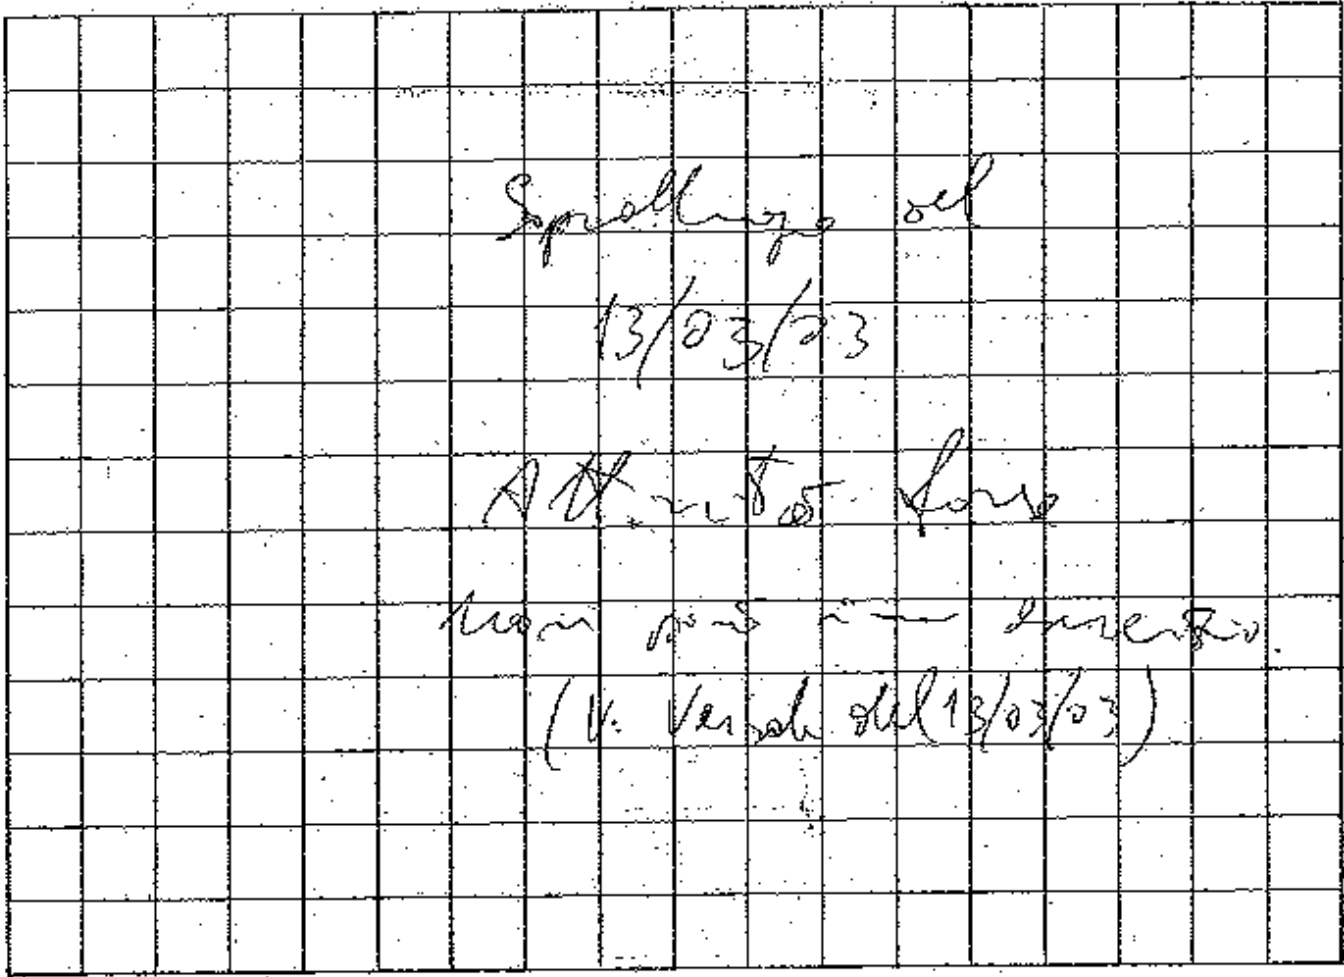 Sopralluogo del
13/03/03
Attività forno
non più in esercizio.
(V. Verbale del 13/03/03)